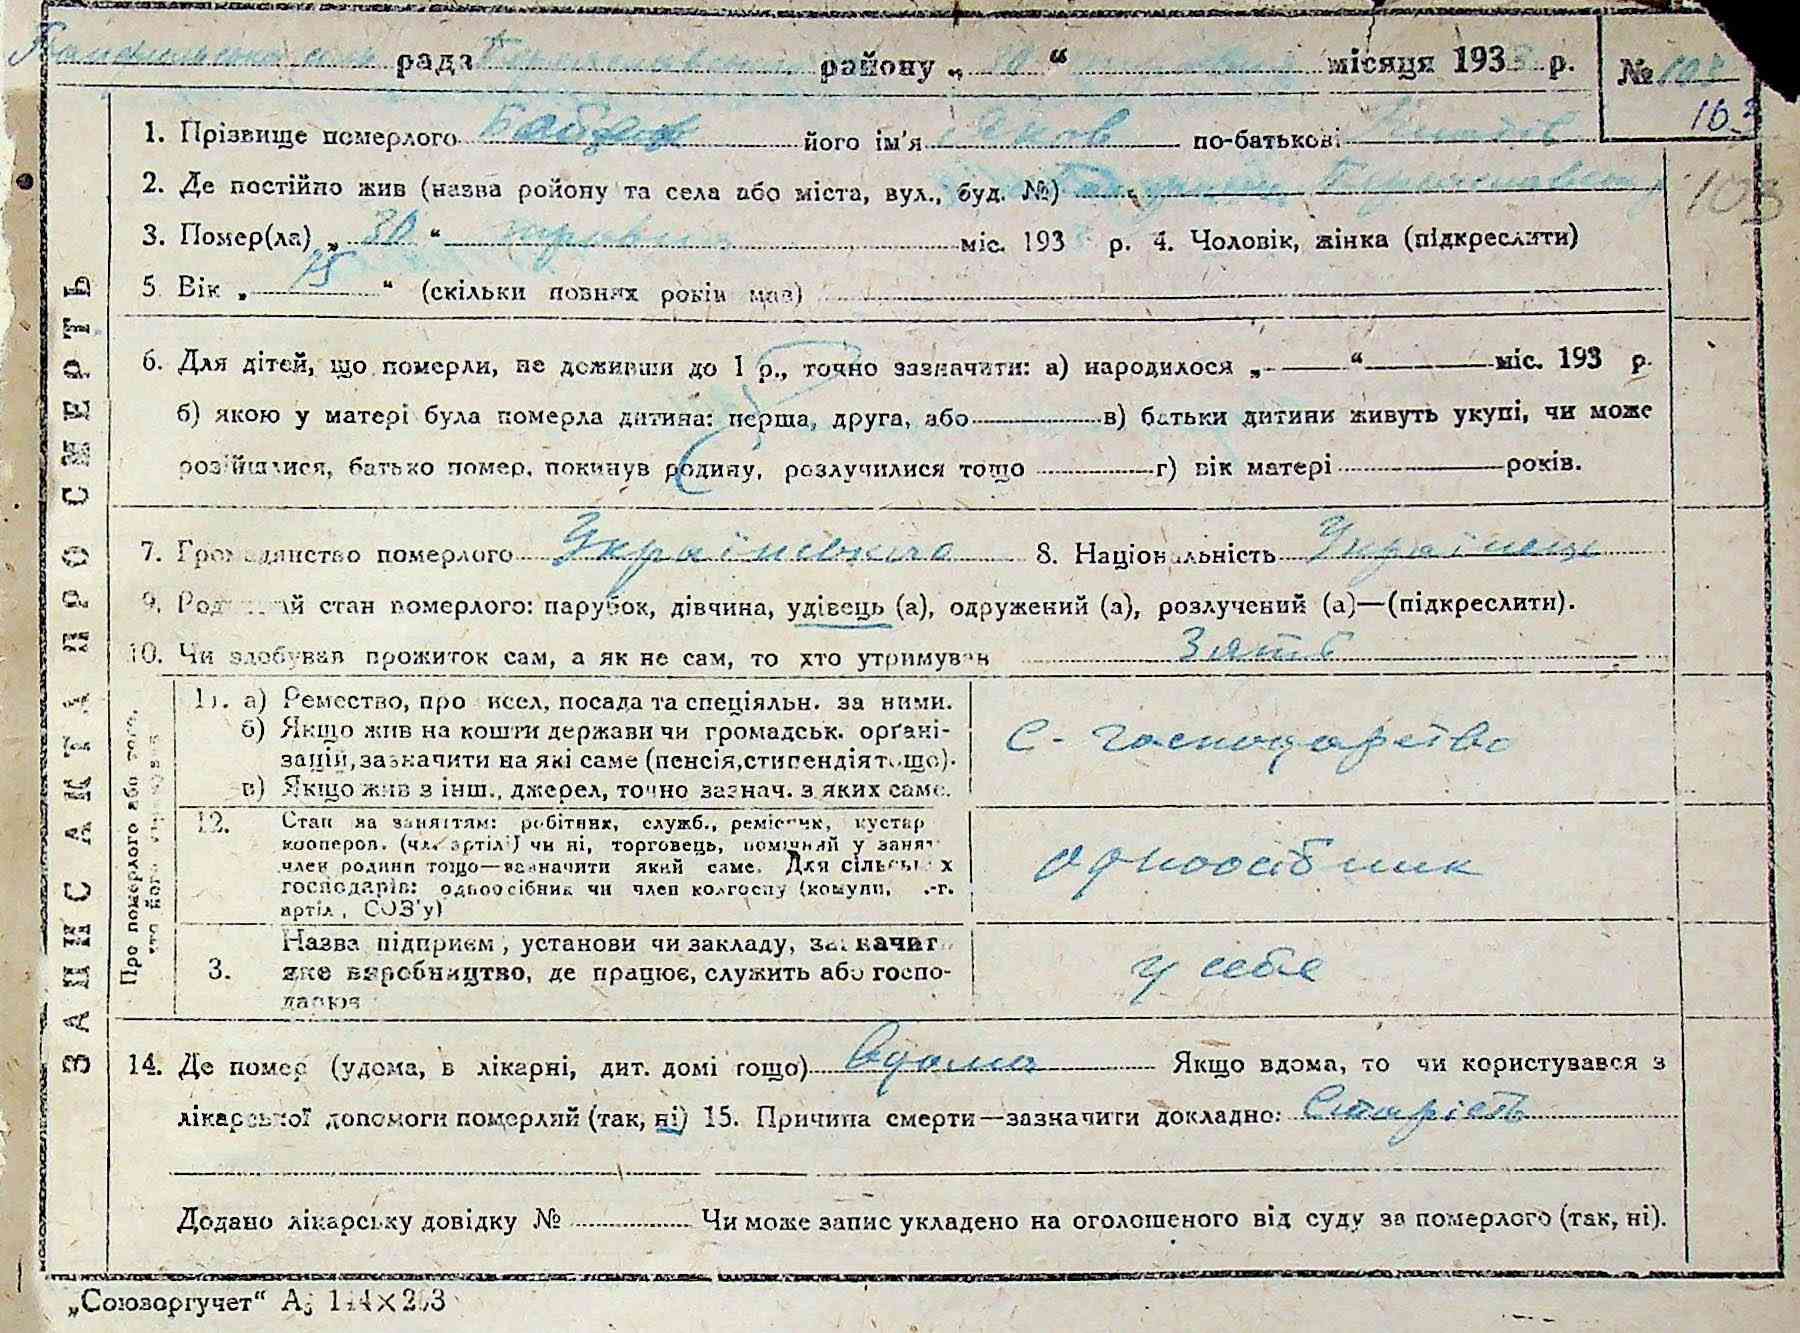 рада району „ 30 “ місяця 1933 р. №
163
1. Прізвище померлого його ім'я Яков по-батькові
103
2. Де постійно жив (назва ройону та села або міста, вул., буд. №)
3. Помер(ла) „ 30 “ травня міс. 193 р. 4. Чоловік, жінка (підкреслити)
5 Вік „ 75 “ (скільки повних років мав)
6. Для дітей, що померли, не доживши до 1 р., точно зазначити: а) народилося „ “ міс. 193 р.
б) якою у матері була померла дитина: перша, друга, або в) батьки дитини живуть укупі, чи може
розійшлися, батько помер, покинув родину, розлучилися тощо г) вік матері років.
7. Громадянство померлого Українського 8. Національність Українець
9. Родинний стан померлого: парубок, дівчина, удівець (а), одружений (а), розлучений (а)—(підкреслити).
10. Чи здобував прожиток сам, а як не сам, то хто утримував Зять
ЗАПИС АКТА ПРО СМЕРТЬ
Про померлого або того, хто його утримував
11. а) Ремество, професія, посада та спеціяльн. за ними.
б) Якщо жив на кошти держави чи громадськ. орґані-
зацій, зазначити на які саме (пенсія, стипендія тощо).
в) Якщо жив з інш., джерел, точно зазнач. з яких саме.
С-господарство
12. Стан за заняттям: робітник, служб., ремісник, кустар
кооперов. (чл. артілі) чи ні, торговець, помічний у занят
член родини тощо—зазначити який саме. Для сільських
господарів: одноосібник чи член колгоспу (комуни, с.-г.
артіл, СОЗ'у)
одноосібник
3. Назва підприєм, установи чи закладу, зазначити
яке виробництво, де працює, служить або госпо-
дарює
у себе
14. Де помер (удома, в лікарні, дит. домі тощо) вдома Якщо вдома, то чи користувався з
лікарської допомоги померлий (так, ні) 15. Причина смерти—зазначити докладно: Старість
Додано лікарську довідку № Чи може запис укладено на оголошеного від суду за померлого (так, ні).
„Союзоргучет“